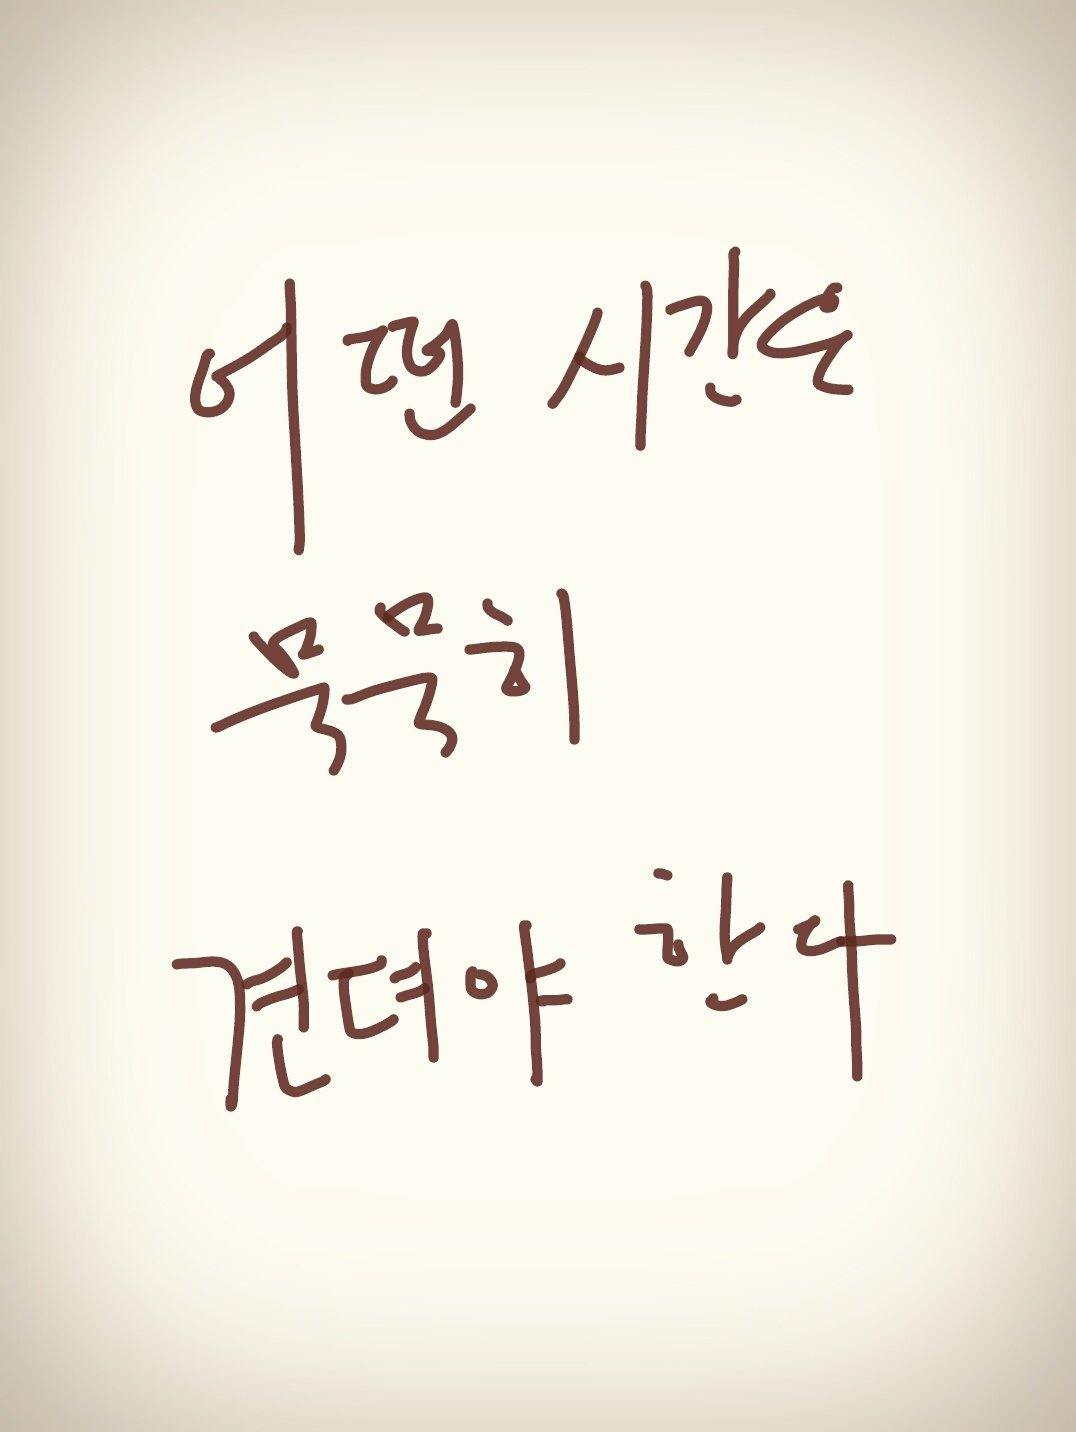 어떤 시간은
묵묵히
견뎌야 한다